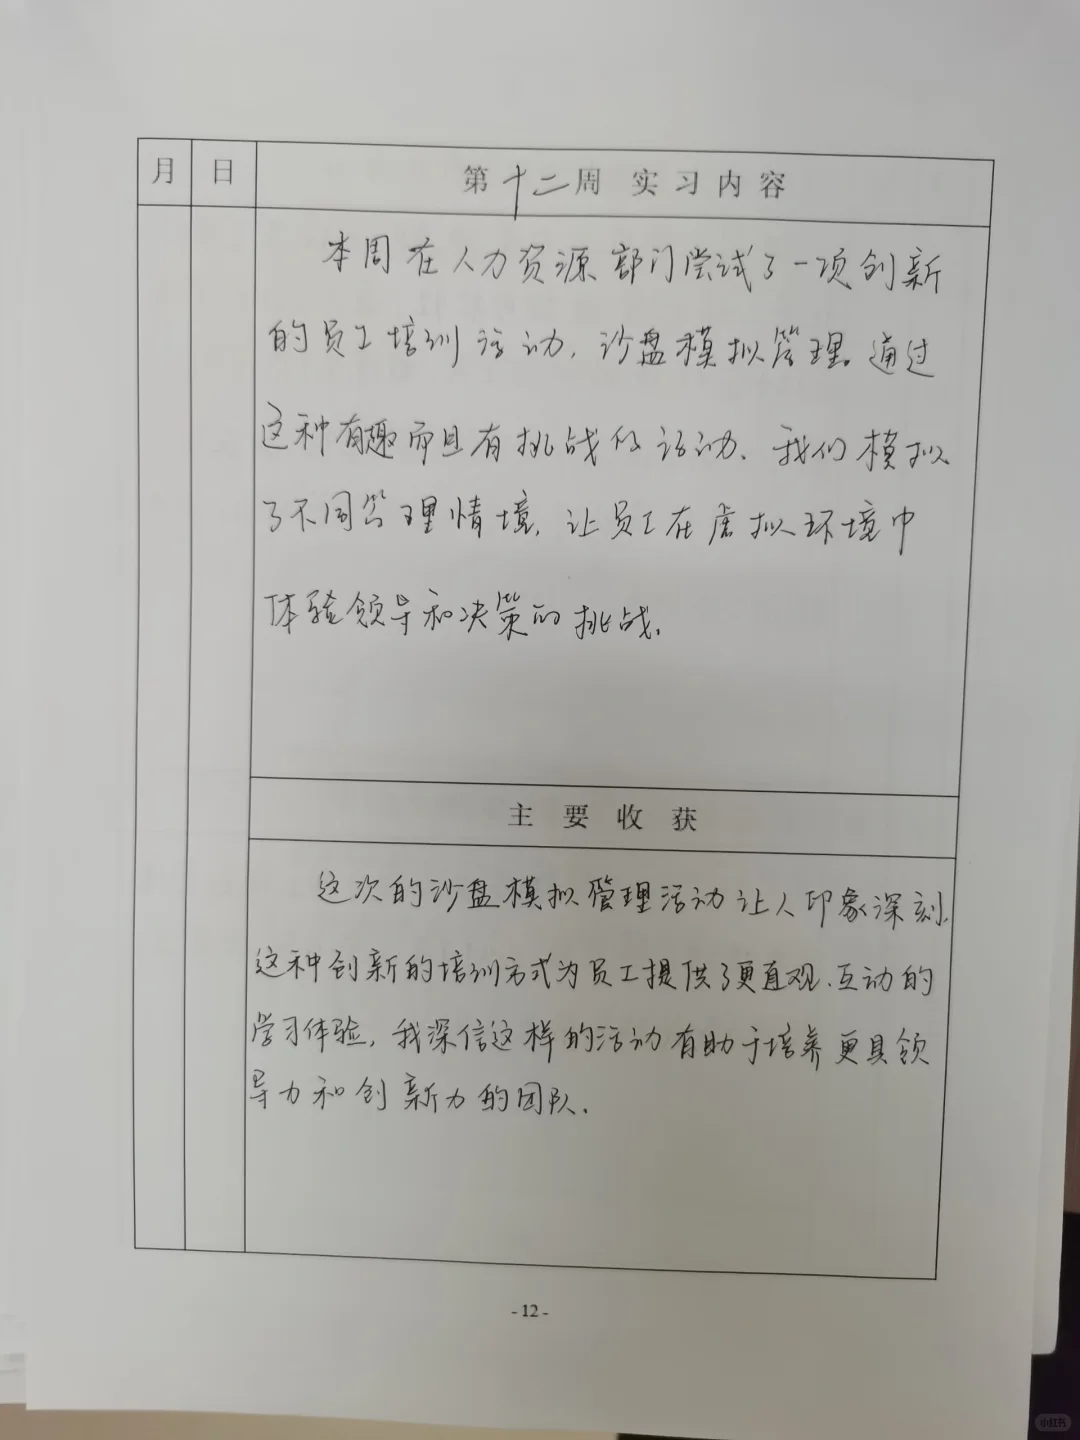 月 日 第十二周 实习内容
本周在人力资源部门尝试了一项创新
的员工培训活动，沙盘模拟管理。通过
这种有趣而且有挑战的活动、我们模拟
了不同管理情境，让员工在虚拟环境中
体验领导和决策的挑战。
主要收获
这次的沙盘模拟管理活动让人印象深刻，
这种创新的培训方式为员工提供了更直观、互动的
学习体验，我深信这样的活动有助于培养更具领
导力和创新力的团队．
- 12 -
小红书